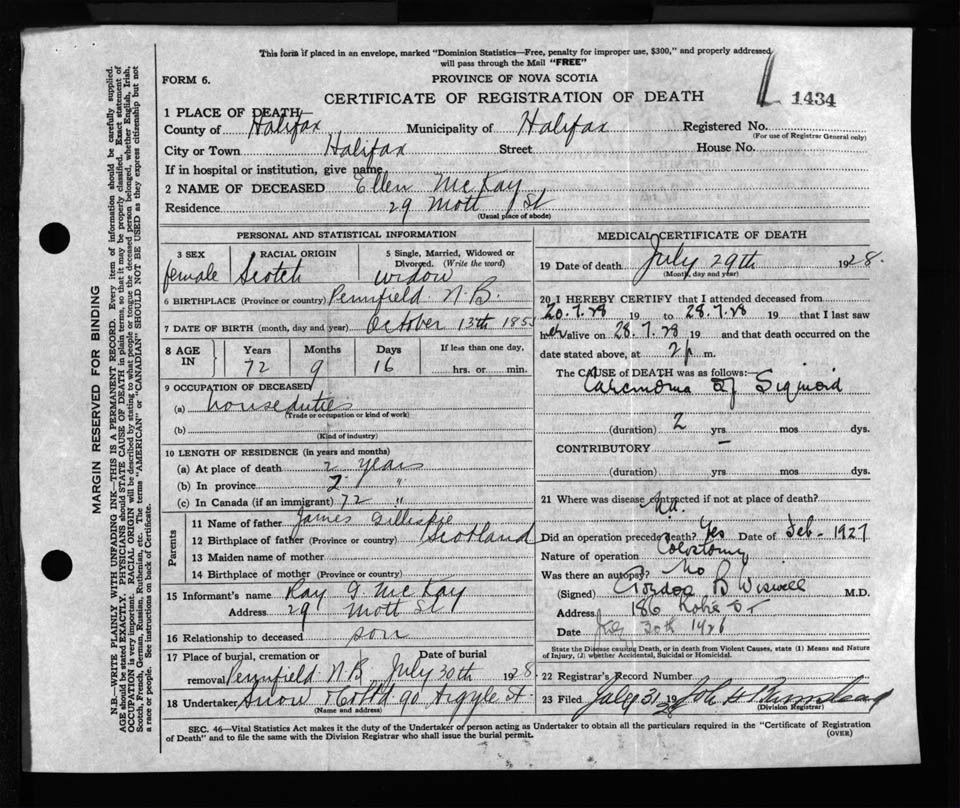 This form if placed in an envelope, marked "Dominion Statistics—Free, penalty for improper use, $300," and properly addressed
will pass through the Mail "FREE"
FORM 6.
PROVINCE OF NOVA SCOTIA
CERTIFICATE OF REGISTRATION OF DEATH
1434
1 PLACE OF DEATH—
County of Halifax Municipality of Halifax Registered No.
(For use of Registrar General only)
City or Town Halifax Street House No.
If in hospital or institution, give name
2 NAME OF DECEASED Ellen McKay
Residence 29 Mott St
(Usual place of abode)
PERSONAL AND STATISTICAL INFORMATION
3 SEX RACIAL ORIGIN 5 Single, Married, Widowed or
Divorced. (Write the word)
female Scotch widow
6 BIRTHPLACE (Province or country) Pennfield N.B.
7 DATE OF BIRTH (month, day and year) October 13th 185
8 AGE IN Years Months Days If less than one day,
72 9 16 hrs. or min.
9 OCCUPATION OF DECEASED
(a) house duties
(Trade or occupation or kind of work)
(b)
(Kind of industry)
10 LENGTH OF RESIDENCE (in years and months)
(a) At place of death 2 years
(b) In province 2 "
(c) In Canada (if an immigrant) 72 "
Parents
11 Name of father James Gillespie
12 Birthplace of father (Province or country) Scotland
13 Maiden name of mother
14 Birthplace of mother (Province or country)
15 Informant's name Ray G. McKay
Address 29 Mott St
16 Relationship to deceased son
17 Place of burial, cremation or Date of burial
removal Pennfield N.B. July 30th 1928
18 Undertaker Snow & Co Ltd 90 Argyle St
(Name and address)
MEDICAL CERTIFICATE OF DEATH
19 Date of death July 29th 1928.
(Month, day and year)
20 I HEREBY CERTIFY that I attended deceased from
20.7.28 19 to 28.7.28 19 that I last saw
her alive on 28.7.28 19 and that death occurred on the
date stated above, at 2 p m.
The CAUSE of DEATH was as follows:
Carcinoma of Sigmoid
(duration) 2 yrs mos dys.
CONTRIBUTORY –
(duration) yrs. mos dys.
21 Where was disease contracted if not at place of death?
Did an operation precede death? Yes Date of Feb - 1927
Nature of operation Colostomy
Was there an autopsy? No
(Signed) B Wiswell M.D.
Address 186 St
Date 30th 1926
State the Disease causing Death, or in death from Violent Causes, state (1) Means and
Nature of Injury, (2) whether Accidental, Suicidal or Homicidal.
22 Registrar's Record Number
23 Filed July 31 1928
(Division Registrar)
SEC. 46—Vital Statistics Act makes it the duty of the Undertaker or person acting as Undertaker to obtain all the particulars required in the "Certificate of Registration
of Death" and to file the same with the Division Registrar who shall issue the burial permit. (OVER)
MARGIN RESERVED FOR BINDING
N.B.—WRITE PLAINLY WITH UNFADING INK—THIS IS A PERMANENT RECORD. Every item of information should be carefully supplied.
AGE should be stated EXACTLY. PHYSICIANS should STATE CAUSE OF DEATH in plain terms, so that it may be properly classified. Exact statement of
OCCUPATION is very important. RACIAL ORIGIN will be described by stating to what people or tongue the deceased person belonged, whether English, Irish,
Scotch, French, German, Russian, Ruthenian, etc. The terms "AMERICAN" or "CANADIAN" SHOULD NOT BE USED as they express citizenship but not
a race or people. See instructions on back of Certificate.